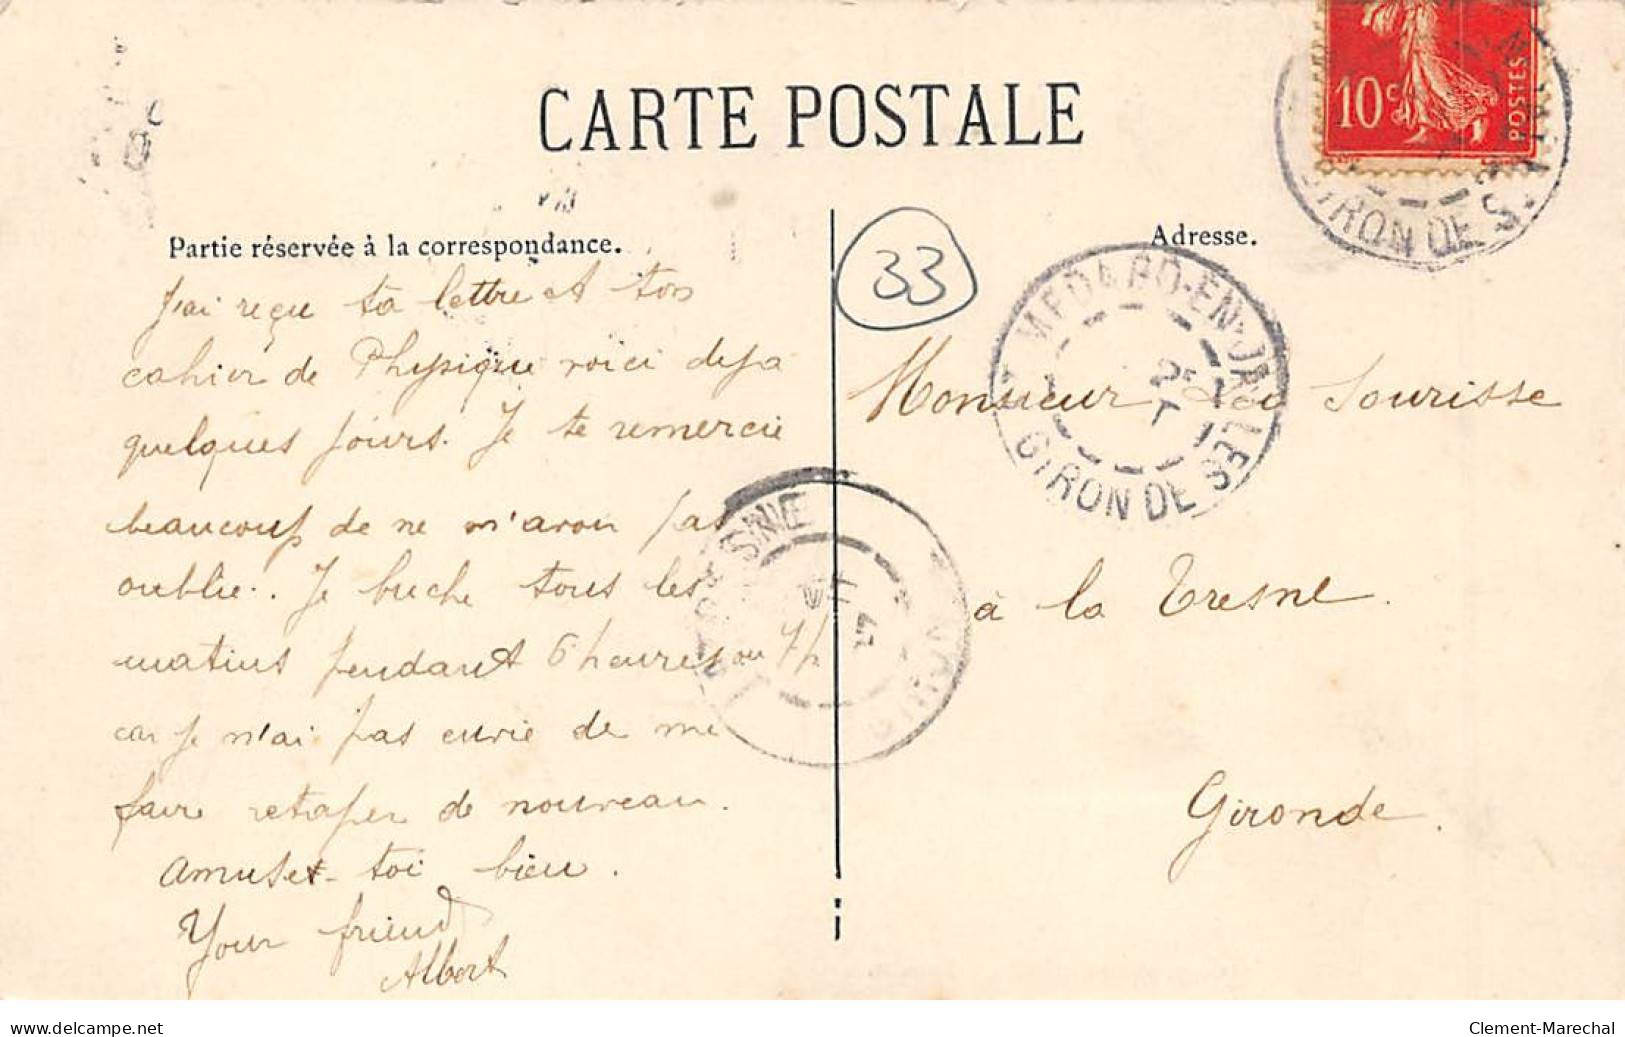 CARTE POSTALE
10c
POSTES
GIRONDE
Partie réservée à la correspondance.
Adresse.
33
J'ai reçu ta lettre et ton
cahier de Physique voici deja
quelques jours. Je te remercie
beaucoup de ne m'avoir pas
oublié.. Je buche tous les
matins pendant 6 heures ou 7h
car je n'ai pas envie de me
faire retaper de nouveau.
Amuses-toi bien.
Your friend
Albert
MEDARD-EN-JALLES
GIRONDE
Monsieur Sourisse
à la Tresne.
Gironde.
delcampe.net
Clement-Marechal